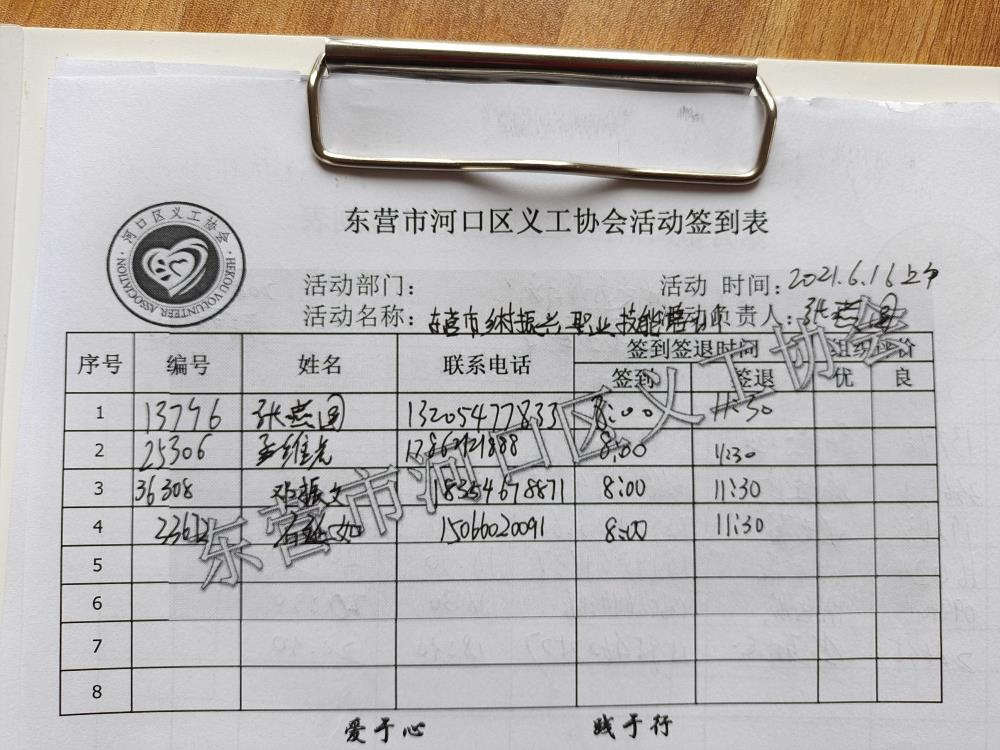 东营市河口区义工协会活动签到表
河口区义工协会
HEKOU VOLUNTEER ASSOCIATION
活动部门：
活动 时间：2021.6.16上午
活动名称：东营市乡村振兴职业技能培训
活动负责人：张燕园
序号 编号 姓名 联系电话 签到签退时间 组织评价
签到 签退 优 良
1 13776 张燕园 13205477833 8:00 11:30
2 25306 孟维光 8:00 11:30
3 36308 邓振文 18354678871 8:00 11:30
4 15066020091 8:00 11:30
5
6
7
8
爱于心 践于行
东营市河口区义工协会